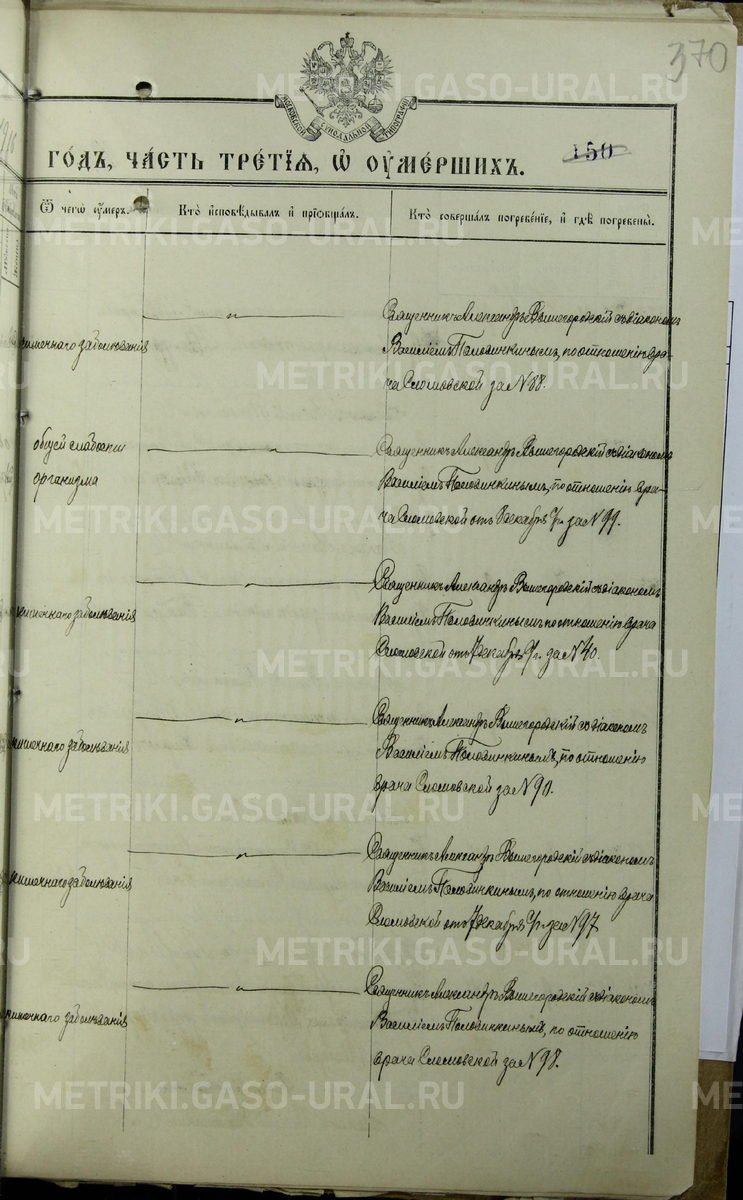 370
МОСКОВСКОЙ СѴНОДАЛЬНОЙ ТИПОГРАФІИ
150
ГО́ДЪ, ЧА́СТЬ ТРЕ́ТІЯ, Ѽ ОУМЕ́РШИХЪ.
Ѿ чегѡ̀ ᲂу҆́меръ.
Кто̀ и҆сповѣ́дывалъ и҆ прїѡбща́лъ.
Кто̀ соверша́лъ погребе́нїе, и҆ гдѣ̀ погребены̀.
кишечнаго заболѣванія
— „ —
Священникъ Александръ Вышегородскій съ діакономъ
Василіемъ Половинкинымъ, по отношенію вра-
ча Сломовской за № 88.
общей слабости
организма
— „ —
Священникъ Александръ Вышегородскій съ діакономъ
Василіемъ Половинкинымъ, по отношенію вра-
ча Сломовской отъ 8 декабря с/г. за № 99.
кишечнаго заболѣванія
— „ —
Священникъ Александръ Вышегородскій съ діакономъ
Василіемъ Половинкинымъ по отношенію врача
Сломовской отъ 7 декабря с/г. за № 40.
кишечнаго заболѣванія
— „ —
Священникъ Александръ Вышегородскій съ діакономъ
Василіемъ Половинкинымъ, по отношенію
врача Сломовской за № 90.
кишечнаго заболѣванія
— „ —
Священникъ Александръ Вышегородскій съ діакономъ
Василіемъ Половинкинымъ, по отношенію врача
Сломовской отъ 7 декабря с/г. за № 97
кишечнаго заболѣванія
— „ —
Священникъ Александръ Вышегородскій съ діакономъ
Василіемъ Половинкинымъ, по отношенію
врача Сломовской за № 98.
METRIKI.GASO-URAL.RU